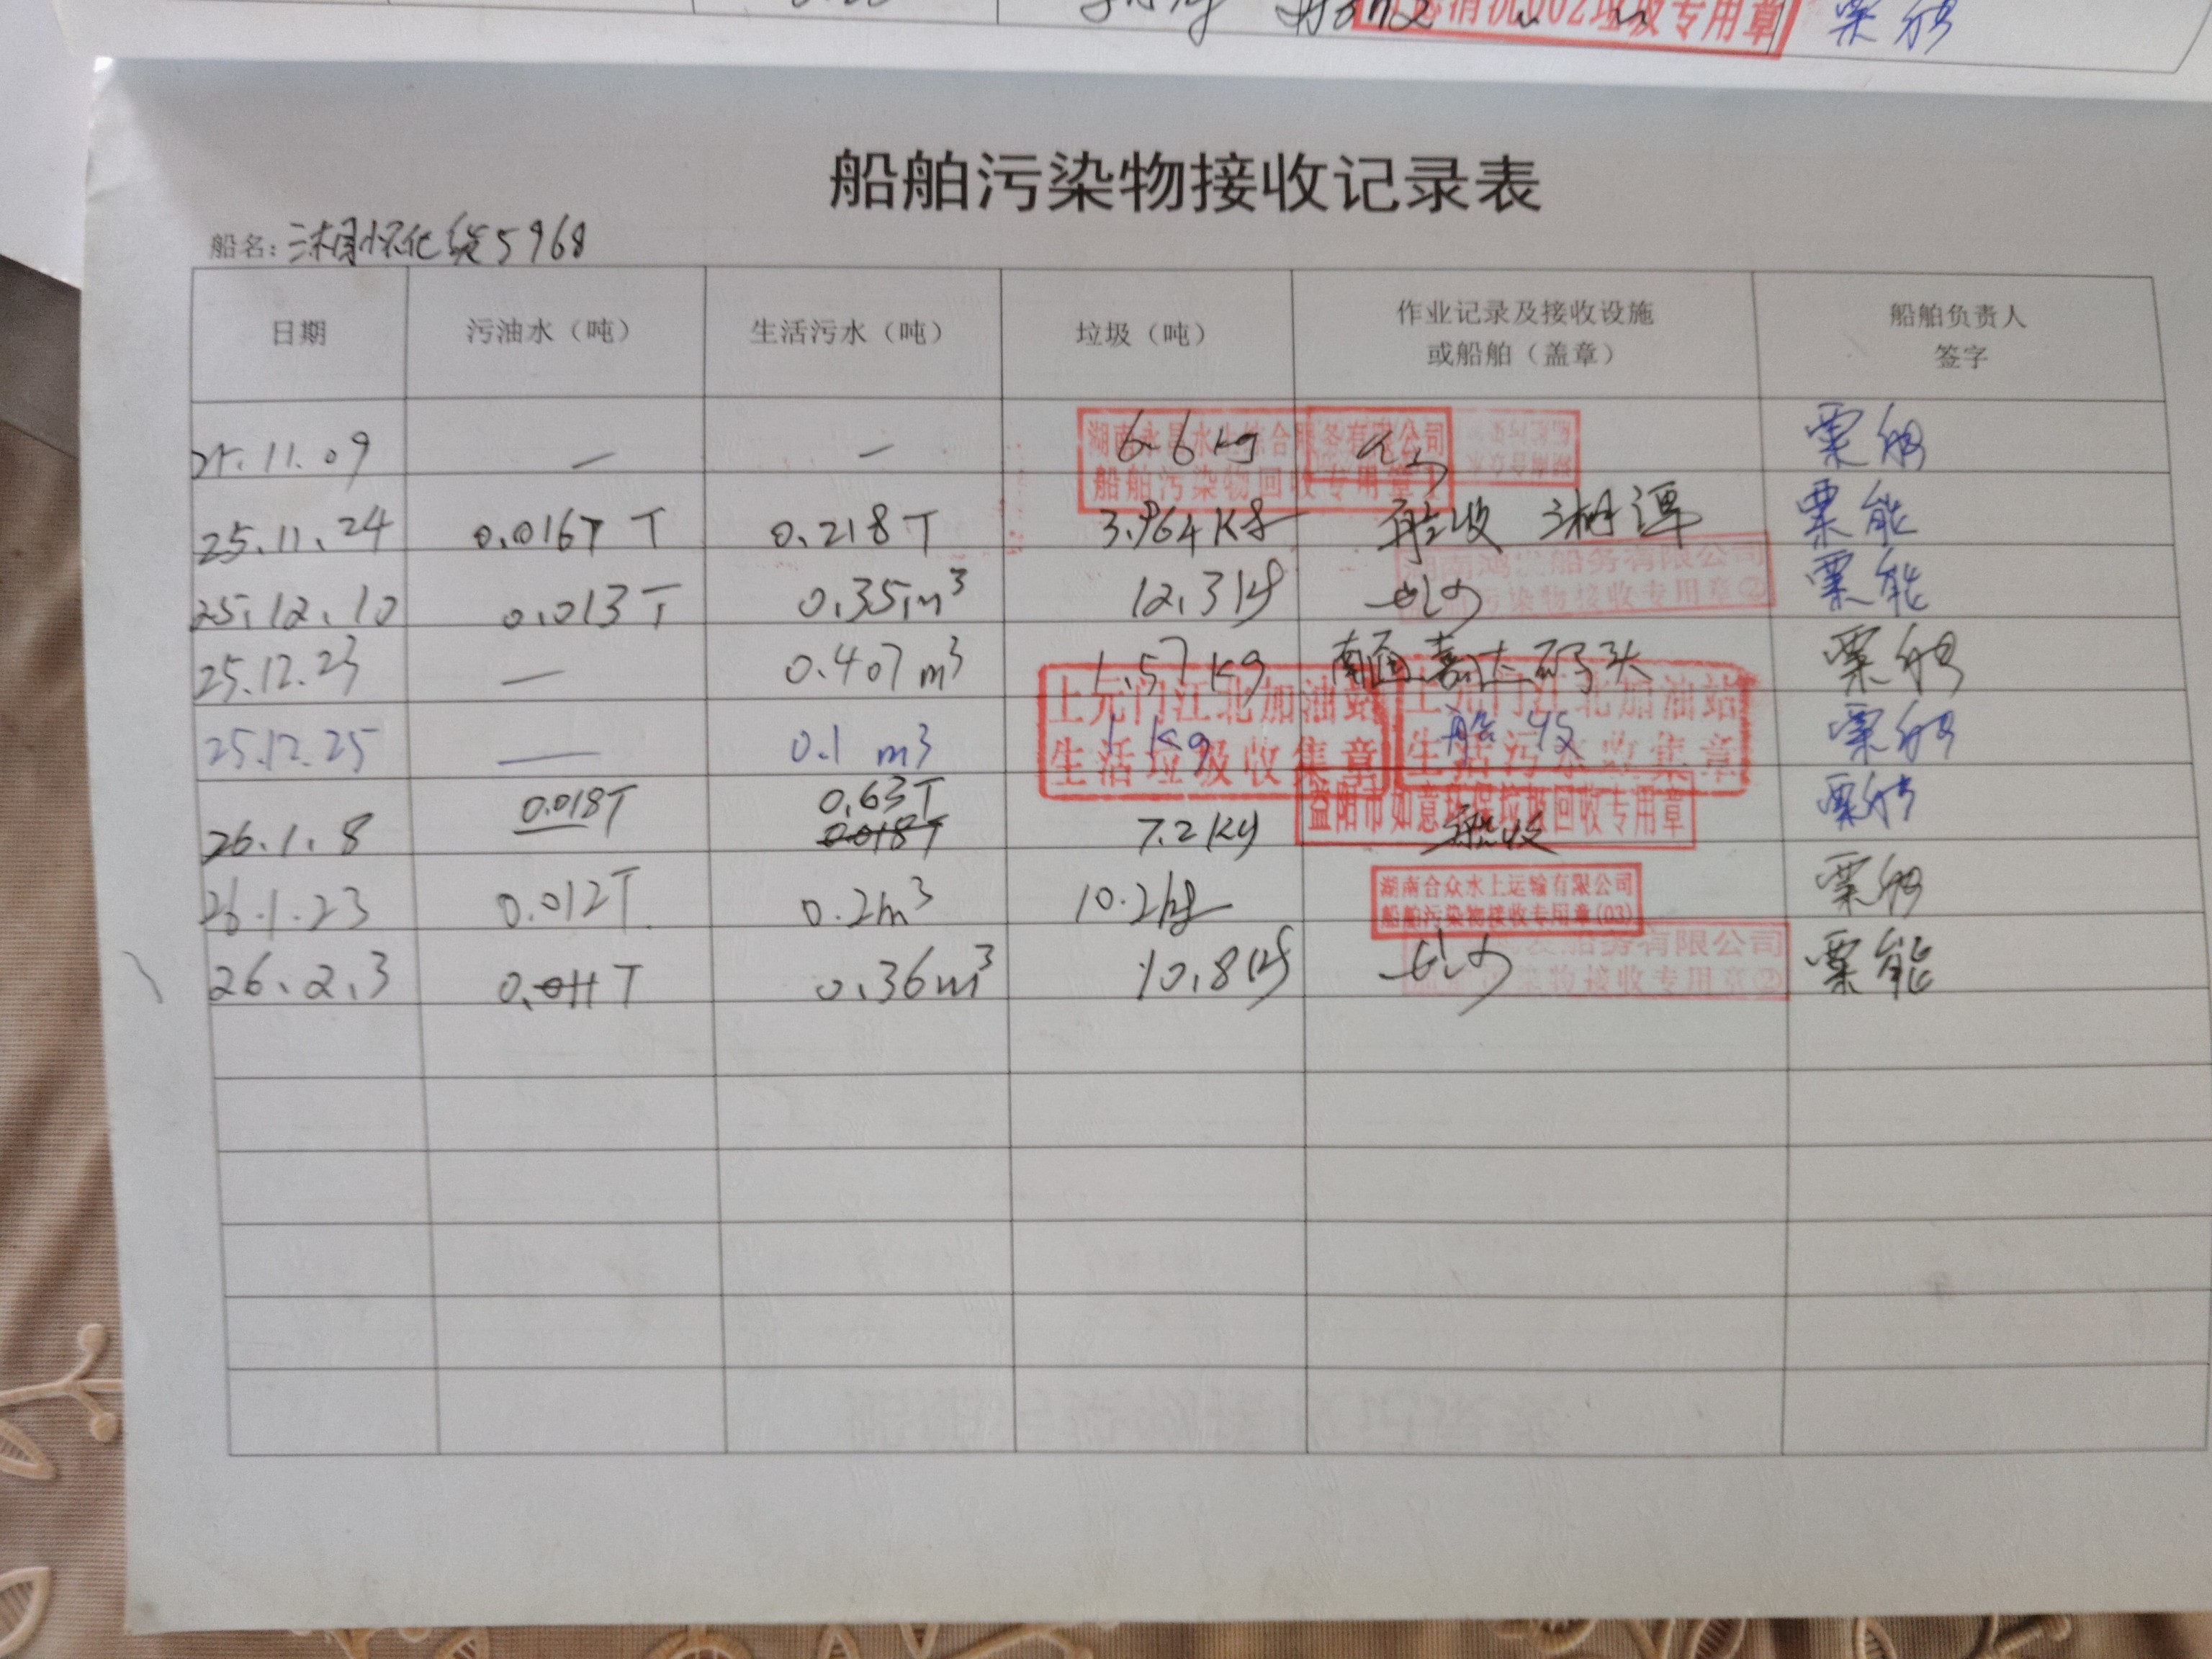 垃圾专用章
船舶污染物接收记录表
船名: 湘怀化货5968
日期 污油水（吨） 生活污水（吨） 垃圾（吨） 作业记录及接收设施或船舶（盖章） 船舶负责人签字
25.11.09 — — 6.6kg
湖南永昌水上综合服务有限公司
船舶污染物回收专用章
25.11.24 0.016T T 0.218T 3.964Kg 船收 湘潭 粟能
25.12.10 0.013T 0.35m³ 12.3kg 粟能
船务有限公司
污染物接收专用章②
25.12.23 — 0.407m³ 1.57kg 南通 码头 粟能
25.12.25 — 0.1 m³ 1kg 船收 粟能
上元门江北加油站
生活垃圾收集章
上元门江北加油站
生活污水收集章
26.1.8 0.018T 0.63T 0.018T 7.2Kg 船收 粟能
益阳市如意环保垃圾回收专用章
26.1.23 0.012T 0.2m³ 10.2kg 粟能
湖南合众水上运输有限公司
船舶污染物接收专用章(03)
26.2.3 0.011T 0.36m³ 10.8kg 粟能
船务有限公司
染物接收专用章②